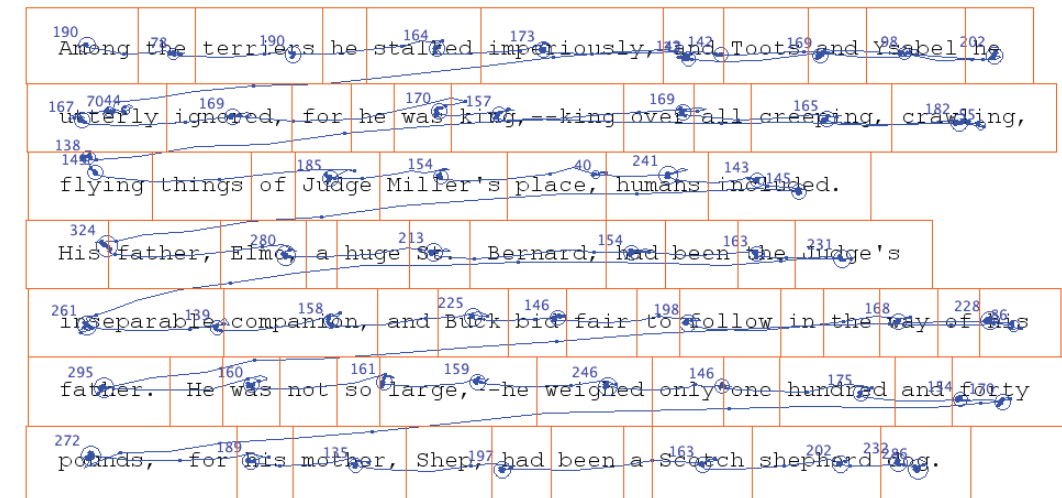 Among the terriers he stalked imperiously, and Toots and Ysabel he
utterly ignored, for he was king,--king over all creeping, crawling,
flying things of Judge Miller's place, humans included.
His father, Elmo, a huge St. Bernard, had been the Judge's
inseparable companion, and Buck bid fair to follow in the way of his
father. He was not so large,--he weighed only one hundred and forty
pounds, for his mother, Shep, had been a Scotch shepherd dog.
190 78 190 164 173 142 142 169 98 202
167 70 44 169 170 157 169 165 182 55
138 149 185 154 40 241 143 145
324 280 213 154 163 231
261 139 158 225 146 198 168 228 86
295 160 161 159 246 146 175 134 170
272 189 135 197 163 202 232 286